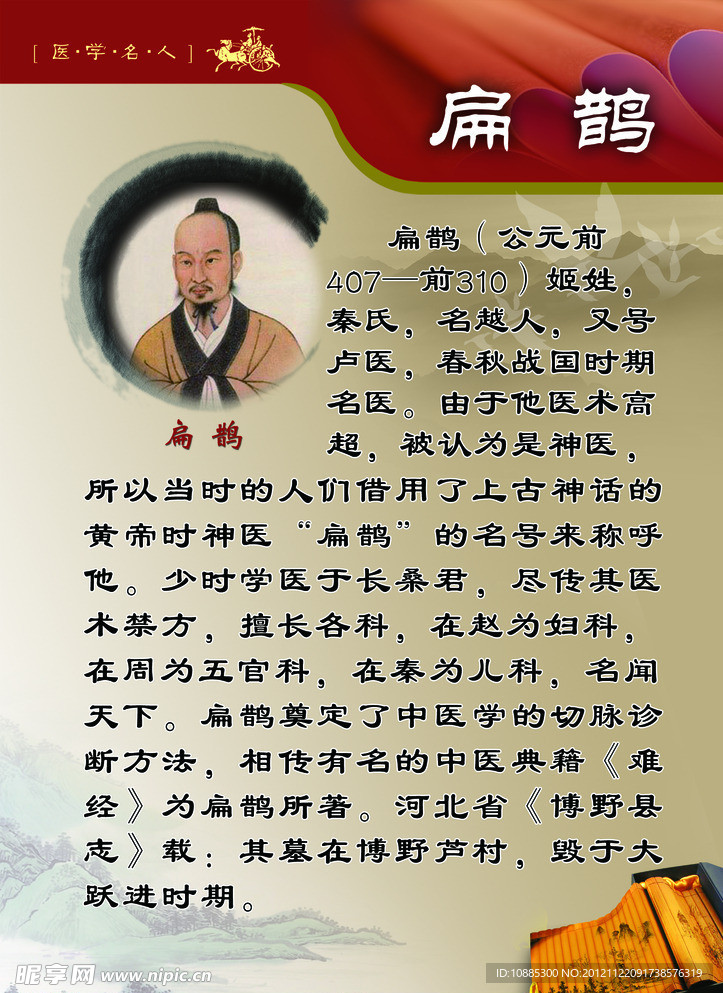 [医·学·名·人]
扁鹊
扁鹊（公元前
407—前310）姬姓，
秦氏，名越人，又号
卢医，春秋战国时期
名医。由于他医术高
超，被认为是神医，
扁鹊
所以当时的人们借用了上古神话的
黄帝时神医“扁鹊”的名号来称呼
他。少时学医于长桑君，尽传其医
术禁方，擅长各科，在赵为妇科，
在周为五官科，在秦为儿科，名闻
天下。扁鹊奠定了中医学的切脉诊
断方法，相传有名的中医典藉《难
经》为扁鹊所著。河北省《博野县
志》载：其墓在博野芦村，毁于大
跃进时期。
昵享网 www.nipic.cn
ID:10885300 NO:20121122091738576319